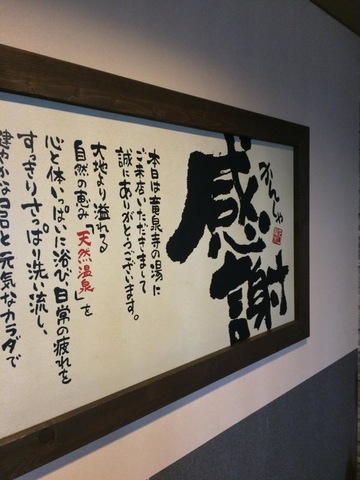 かんしゃ
感謝
本日は竜泉寺の湯に
ご来店いただきまして
誠にありがとうございます。
大地より溢れる
自然の恵み「天然温泉」を
心と体いっぱいに浴び、日常の疲れを
すっきりさっぱり洗い流し、
健やかな心と元気なカラダで